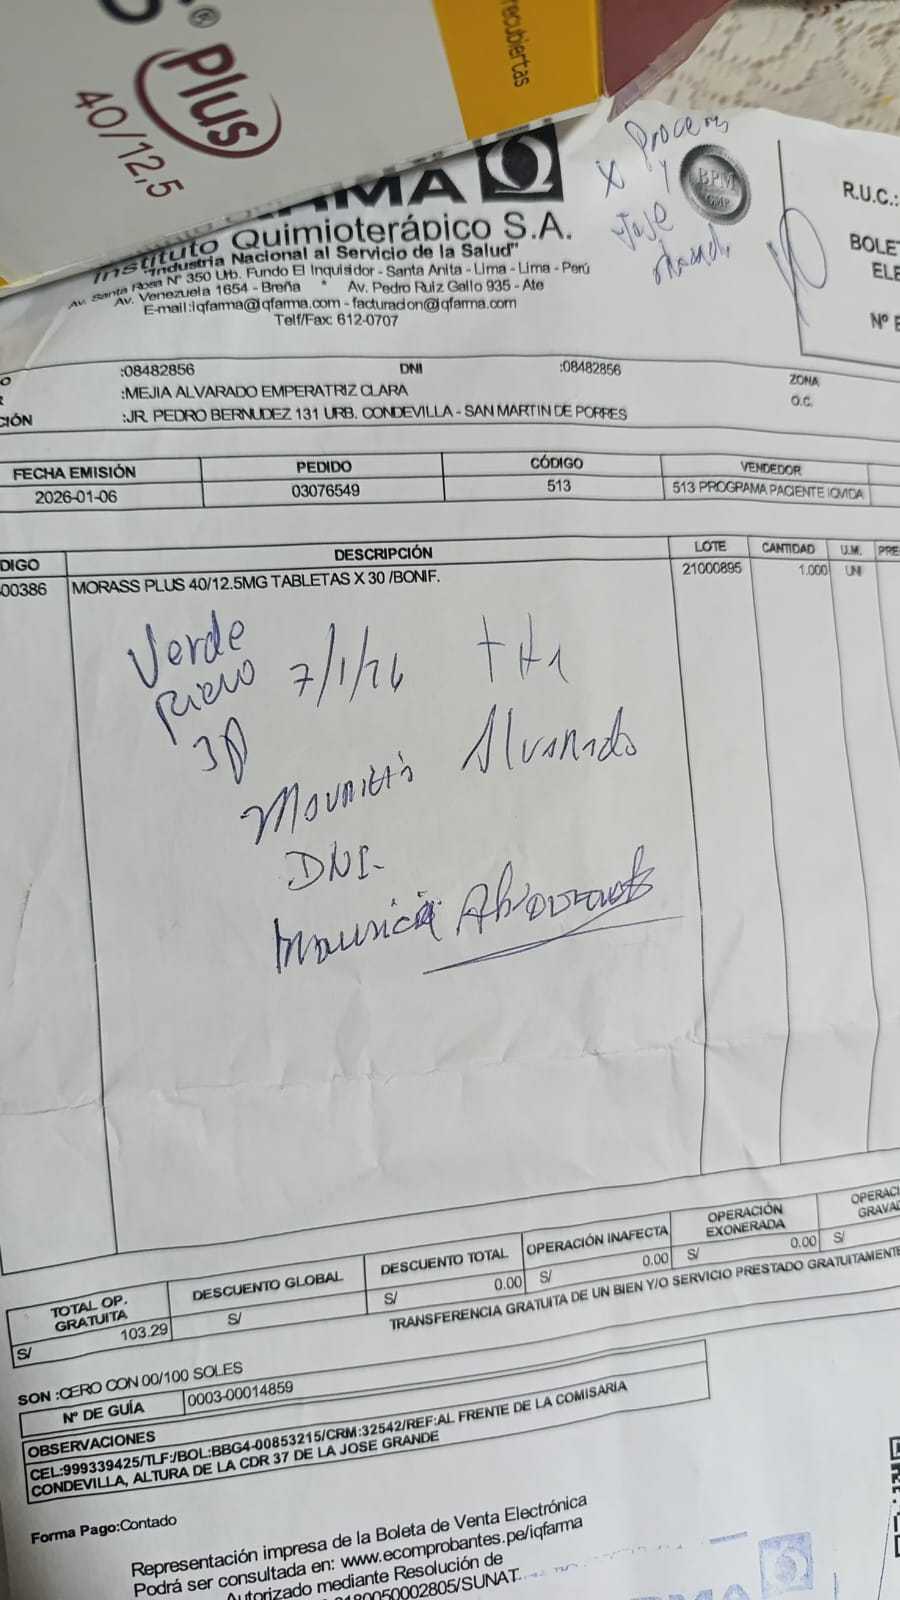 ® Plus
40/12,5
recubiertas
Instituto Quimioterápico S.A.
"Industria Nacional al Servicio de la Salud"
Av. Santa Rosa N° 350 Urb. Fundo El Inquisidor - Santa Anita - Lima - Lima - Perú
Av. Venezuela 1654 - Breña * Av. Pedro Ruiz Gallo 935 - Ate
E-mail:iqfarma@iqfarma.com - facturacion@iqfarma.com
Telf/Fax: 612-0707
X
y
Jose
BPM
R.U.C.:
BOLE
ELE
Nº
:08482856 DNI :08482856
:MEJIA ALVARADO EMPERATRIZ CLARA ZONA
CIÓN :JR. PEDRO BERNUDEZ 131 URB. CONDEVILLA - SAN MARTIN DE PORRES O.C.
FECHA EMISIÓN PEDIDO CÓDIGO VENDEDOR
2026-01-06 03076549 513 513 PROGRAMA PACIENTE IQVIDA
DIGO DESCRIPCIÓN LOTE CANTIDAD U.M. PRE
00386 MORASS PLUS 40/12.5MG TABLETAS X 30 /BONIF. 21000895 1.000 UNI
Verde
7/1/26
Alvarado
DNI.
TOTAL OP. GRATUITA DESCUENTO GLOBAL DESCUENTO TOTAL OPERACIÓN INAFECTA OPERACIÓN EXONERADA OPERACI GRAVAD
S/ 103.29 S/ S/ 0.00 S/ 0.00 S/ 0.00 S/
TRANSFERENCIA GRATUITA DE UN BIEN Y/O SERVICIO PRESTADO GRATUITAMENTE
SON :CERO CON 00/100 SOLES
Nº DE GUÍA 0003-00014859
OBSERVACIONES
CEL:999339425/TLF:/BOL:BBG4-00853215/CRM:32542/REF:AL FRENTE DE LA COMISARIA
CONDEVILLA, ALTURA DE LA CDR 37 DE LA JOSE GRANDE
Forma Pago:Contado
Representación impresa de la Boleta de Venta Electrónica
Podrá ser consultada en: www.ecomprobantes.pe/iqfarma
Autorizado mediante Resolución de
0050002805/SUNAT